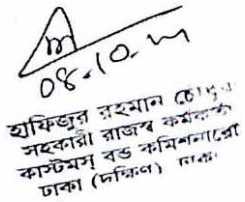 08.10.
হাফিজুর রহমান চৌ
সহকারী রাজস্ব কর্মকর্তা
কাস্টমস্ বন্ড কমিশনারেট
ঢাকা (দক্ষিণ) ঢাকা